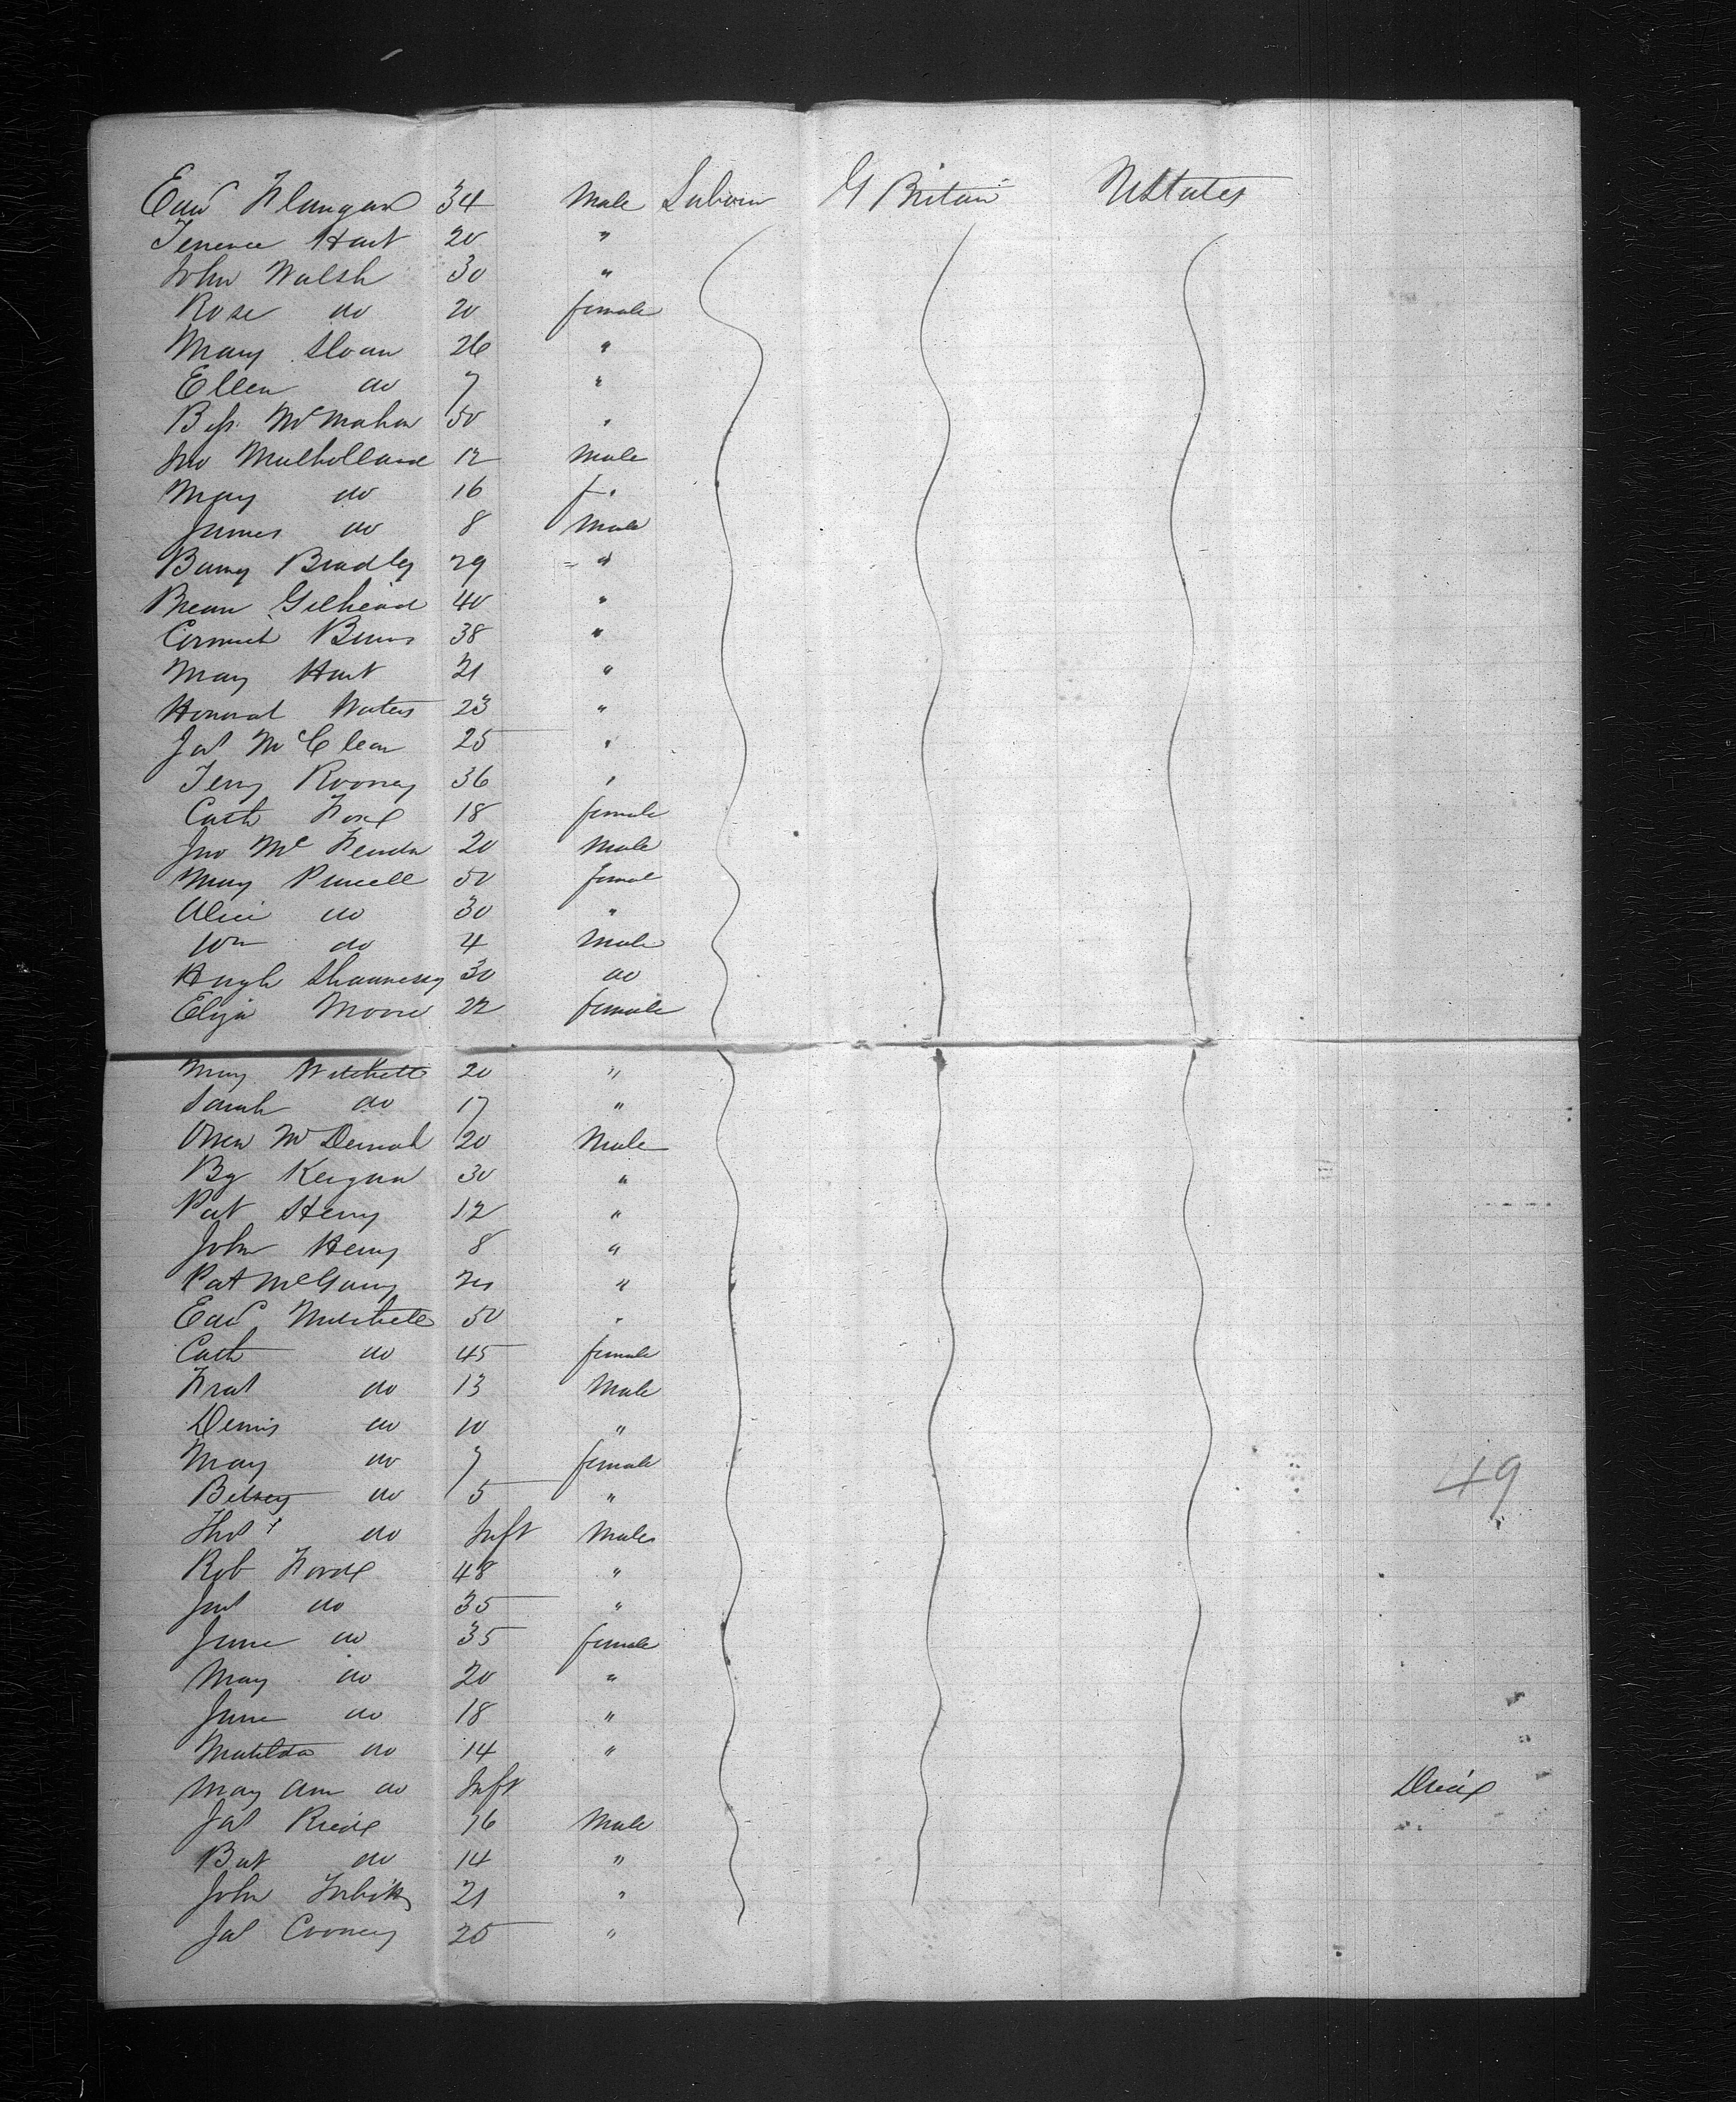 Edwd Flangan 34 Male Laborer G Britain UStates
Terence Hart 20 "
John Walsh 30 "
Rose do 20 female
Mary Sloan 26 "
Ellen do 7 "
Bess McMahon 50 "
Jno Mulholland 12 Male
Mary do 16 f "
James do 8 Male
Barney Bradley 29 "
40 "
38 "
Mary Hart 21 "
Honorah Waters 23 "
Jas McClean 25 "
Terry Rooney 36 "
Cath Ford 18 female
Jno Mc 20 Male
Mary Purcell 50 femal
Alice do 30 "
Wm do 4 Male
Hugh Shaunessy 30 do
Eliza Moore 22 female
Mary Mitchell 20 "
Sarah do 17 "
Owen 20 Male
30 "
Pat Henry 12 "
John Henry 8 "
Pat McGarry "
Edwd Mitchell 50 "
Cath do 45 female
do 13 Male
Dennis do 10 "
Mary do 7 female
Betsey do 5 "
Thos do Inft Male
Rob Ford 48 "
do 35 "
Jane do 35 female
Mary do 20 "
Jane do 18 "
Matilda do 14 "
Mary Ann do Inft Died
Jas Reid 16 Male
Bat do 14 "
John 21 "
Jas Cooney 25 "
49